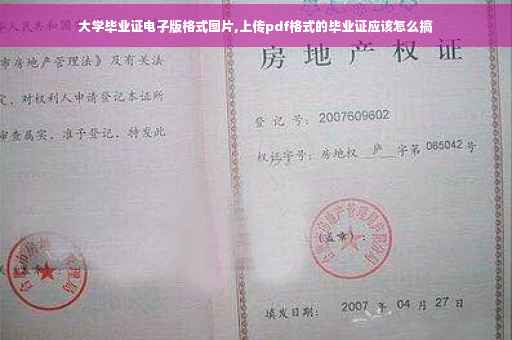 大学毕业证电子版格式图片,上传pdf格式的毕业证应该怎么搞
人民共和国
市房地产管理法》及有关法
定，对权利人申请登记本证所
审查属实，准予登记，特发此
房地产权证
登记号：2007609602
权证字号：房地权 庐 字第 065042 号
(盖章)：
填发日期：2007 年 04 月 27 日